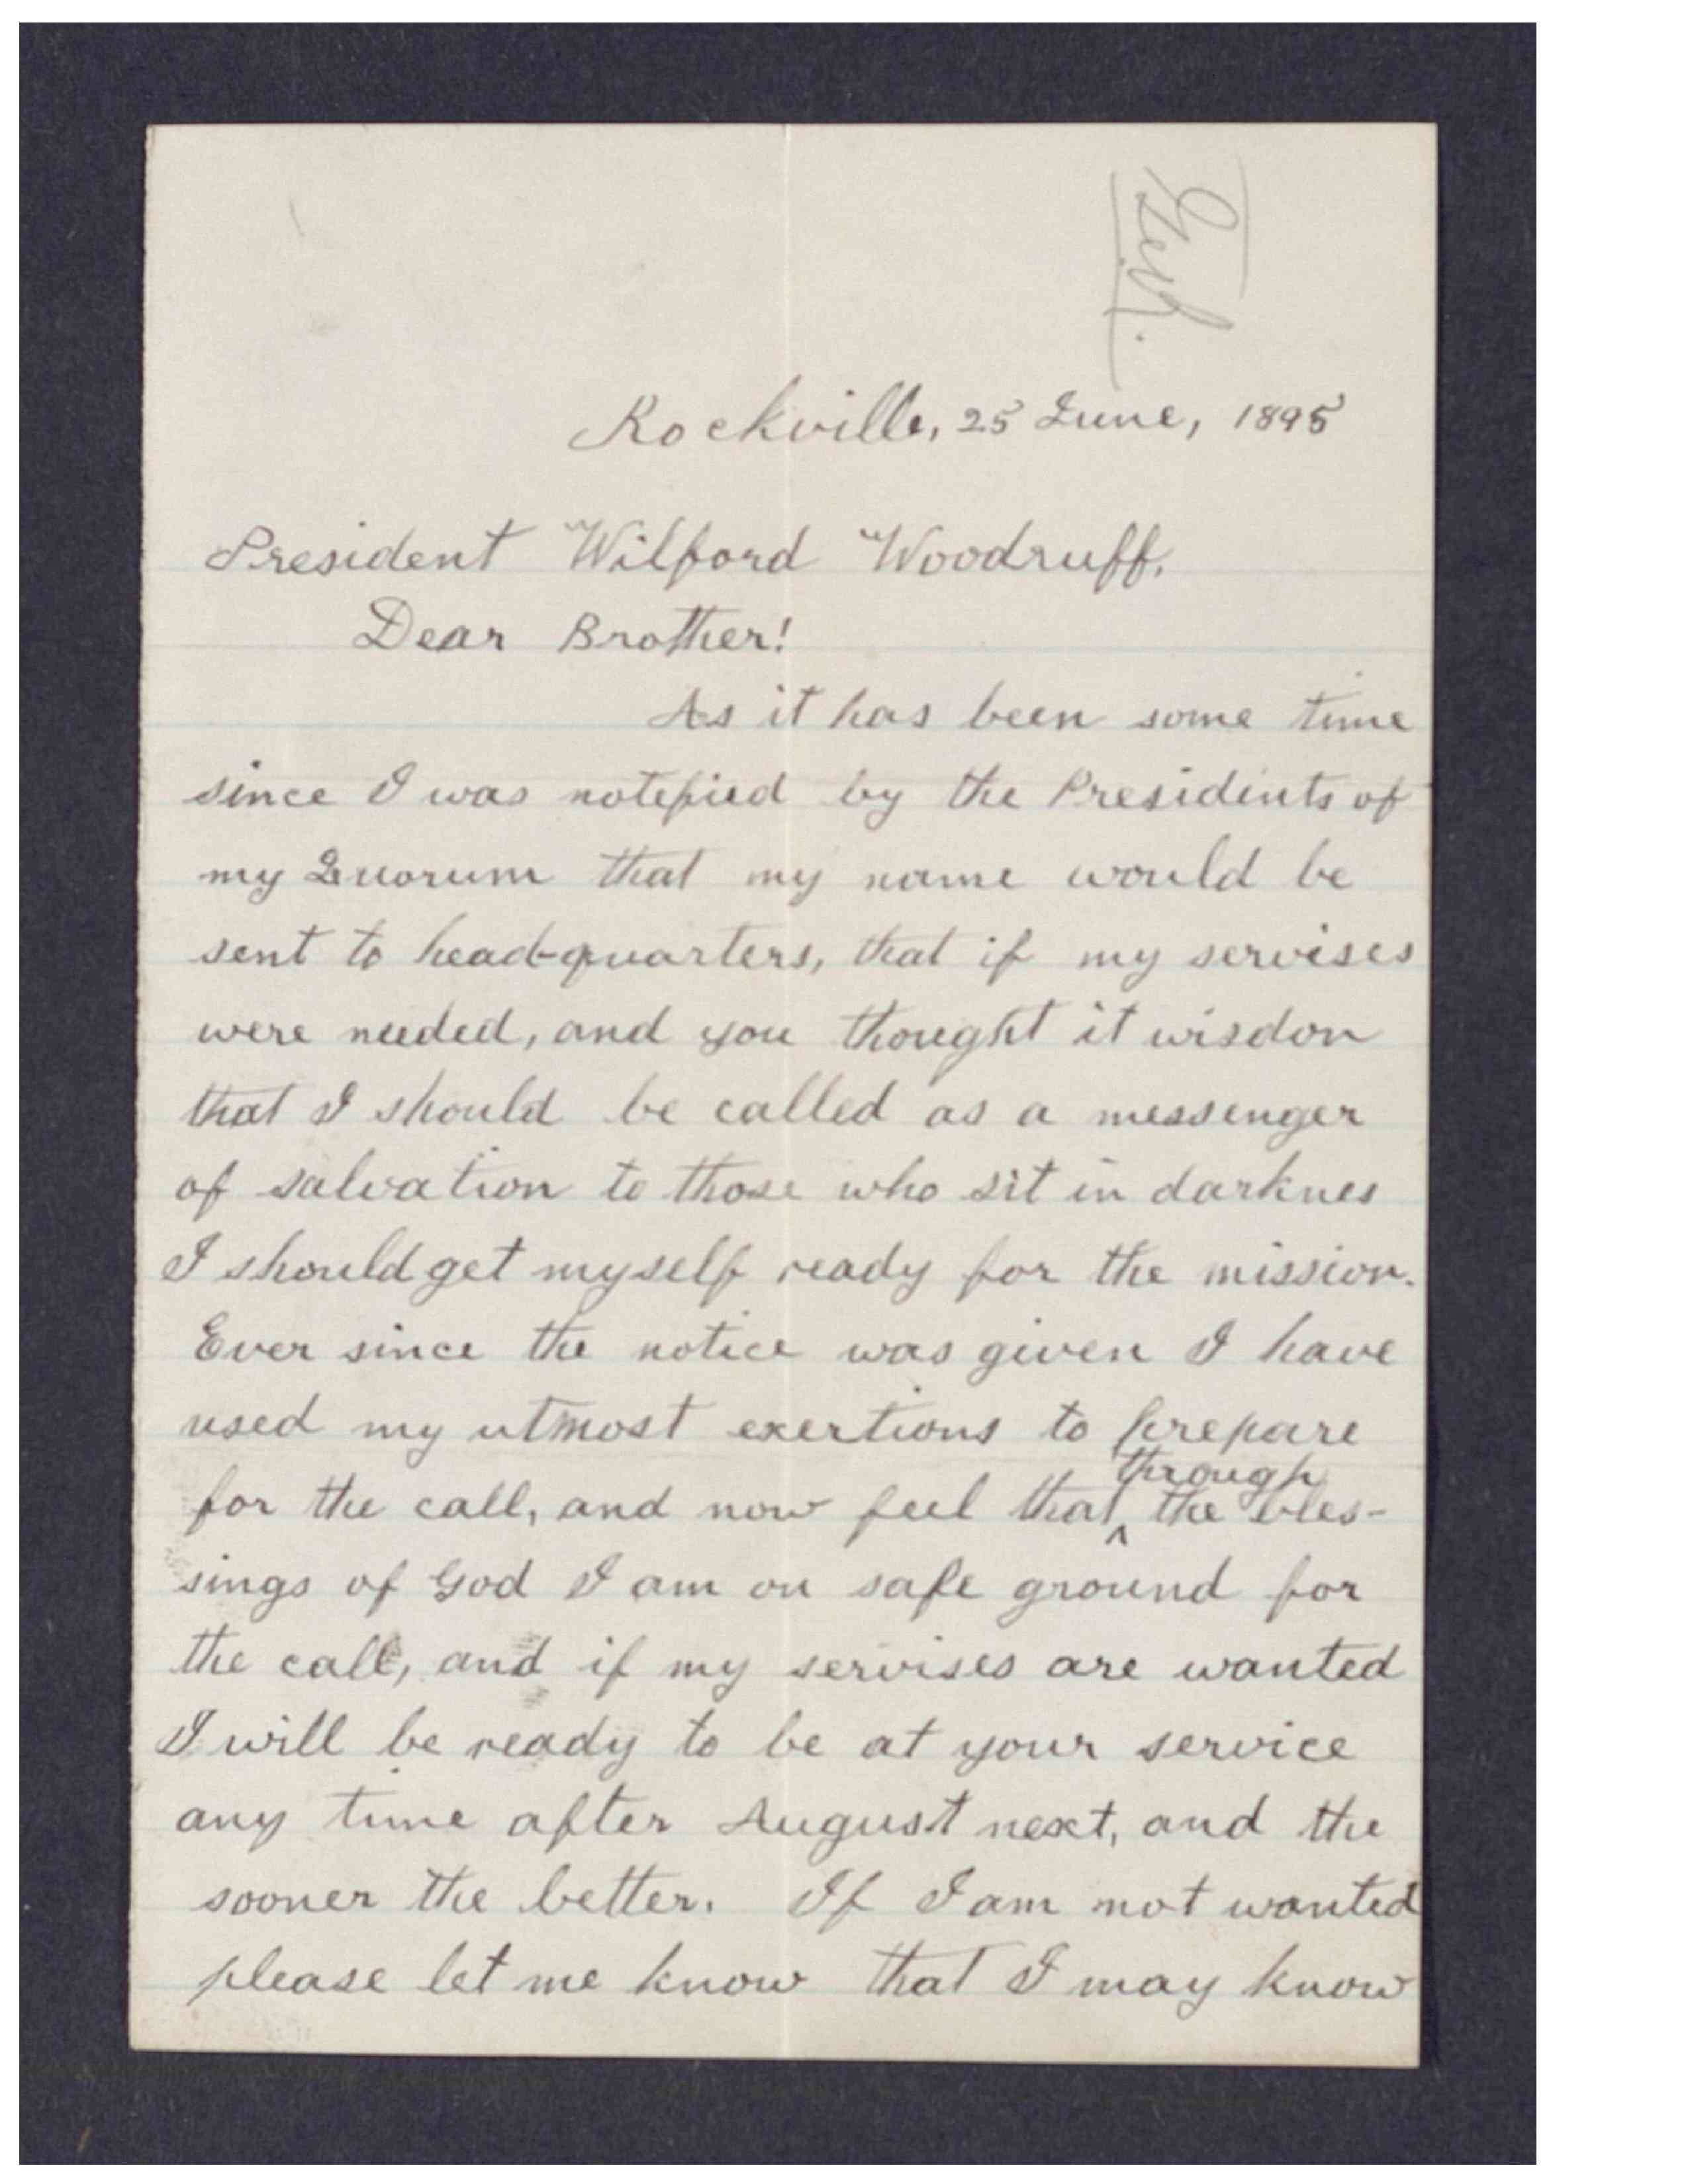 Rockville, 25 June, 1895
President Wilford Woodruff.
Dear Brother!
As it has been some time
since I was notified by the Presidents of
my Quorum that my name would be
sent to head-quarters, that if my servises
were needed, and you thought it wisdon
that I should be called as a messenger
of salvation to those who sit in darknes
I should get myself ready for the mission.
Ever since the notice was given I have
used my utmost exertions to prepare
through
for the call, and now feel that ^ the bles-
sings of God I am on safe ground for
the call, and if my servises are wanted
I will be ready to be at your service
any time after August next, and the
sooner the better. If I am not wanted
please let me know that I may know